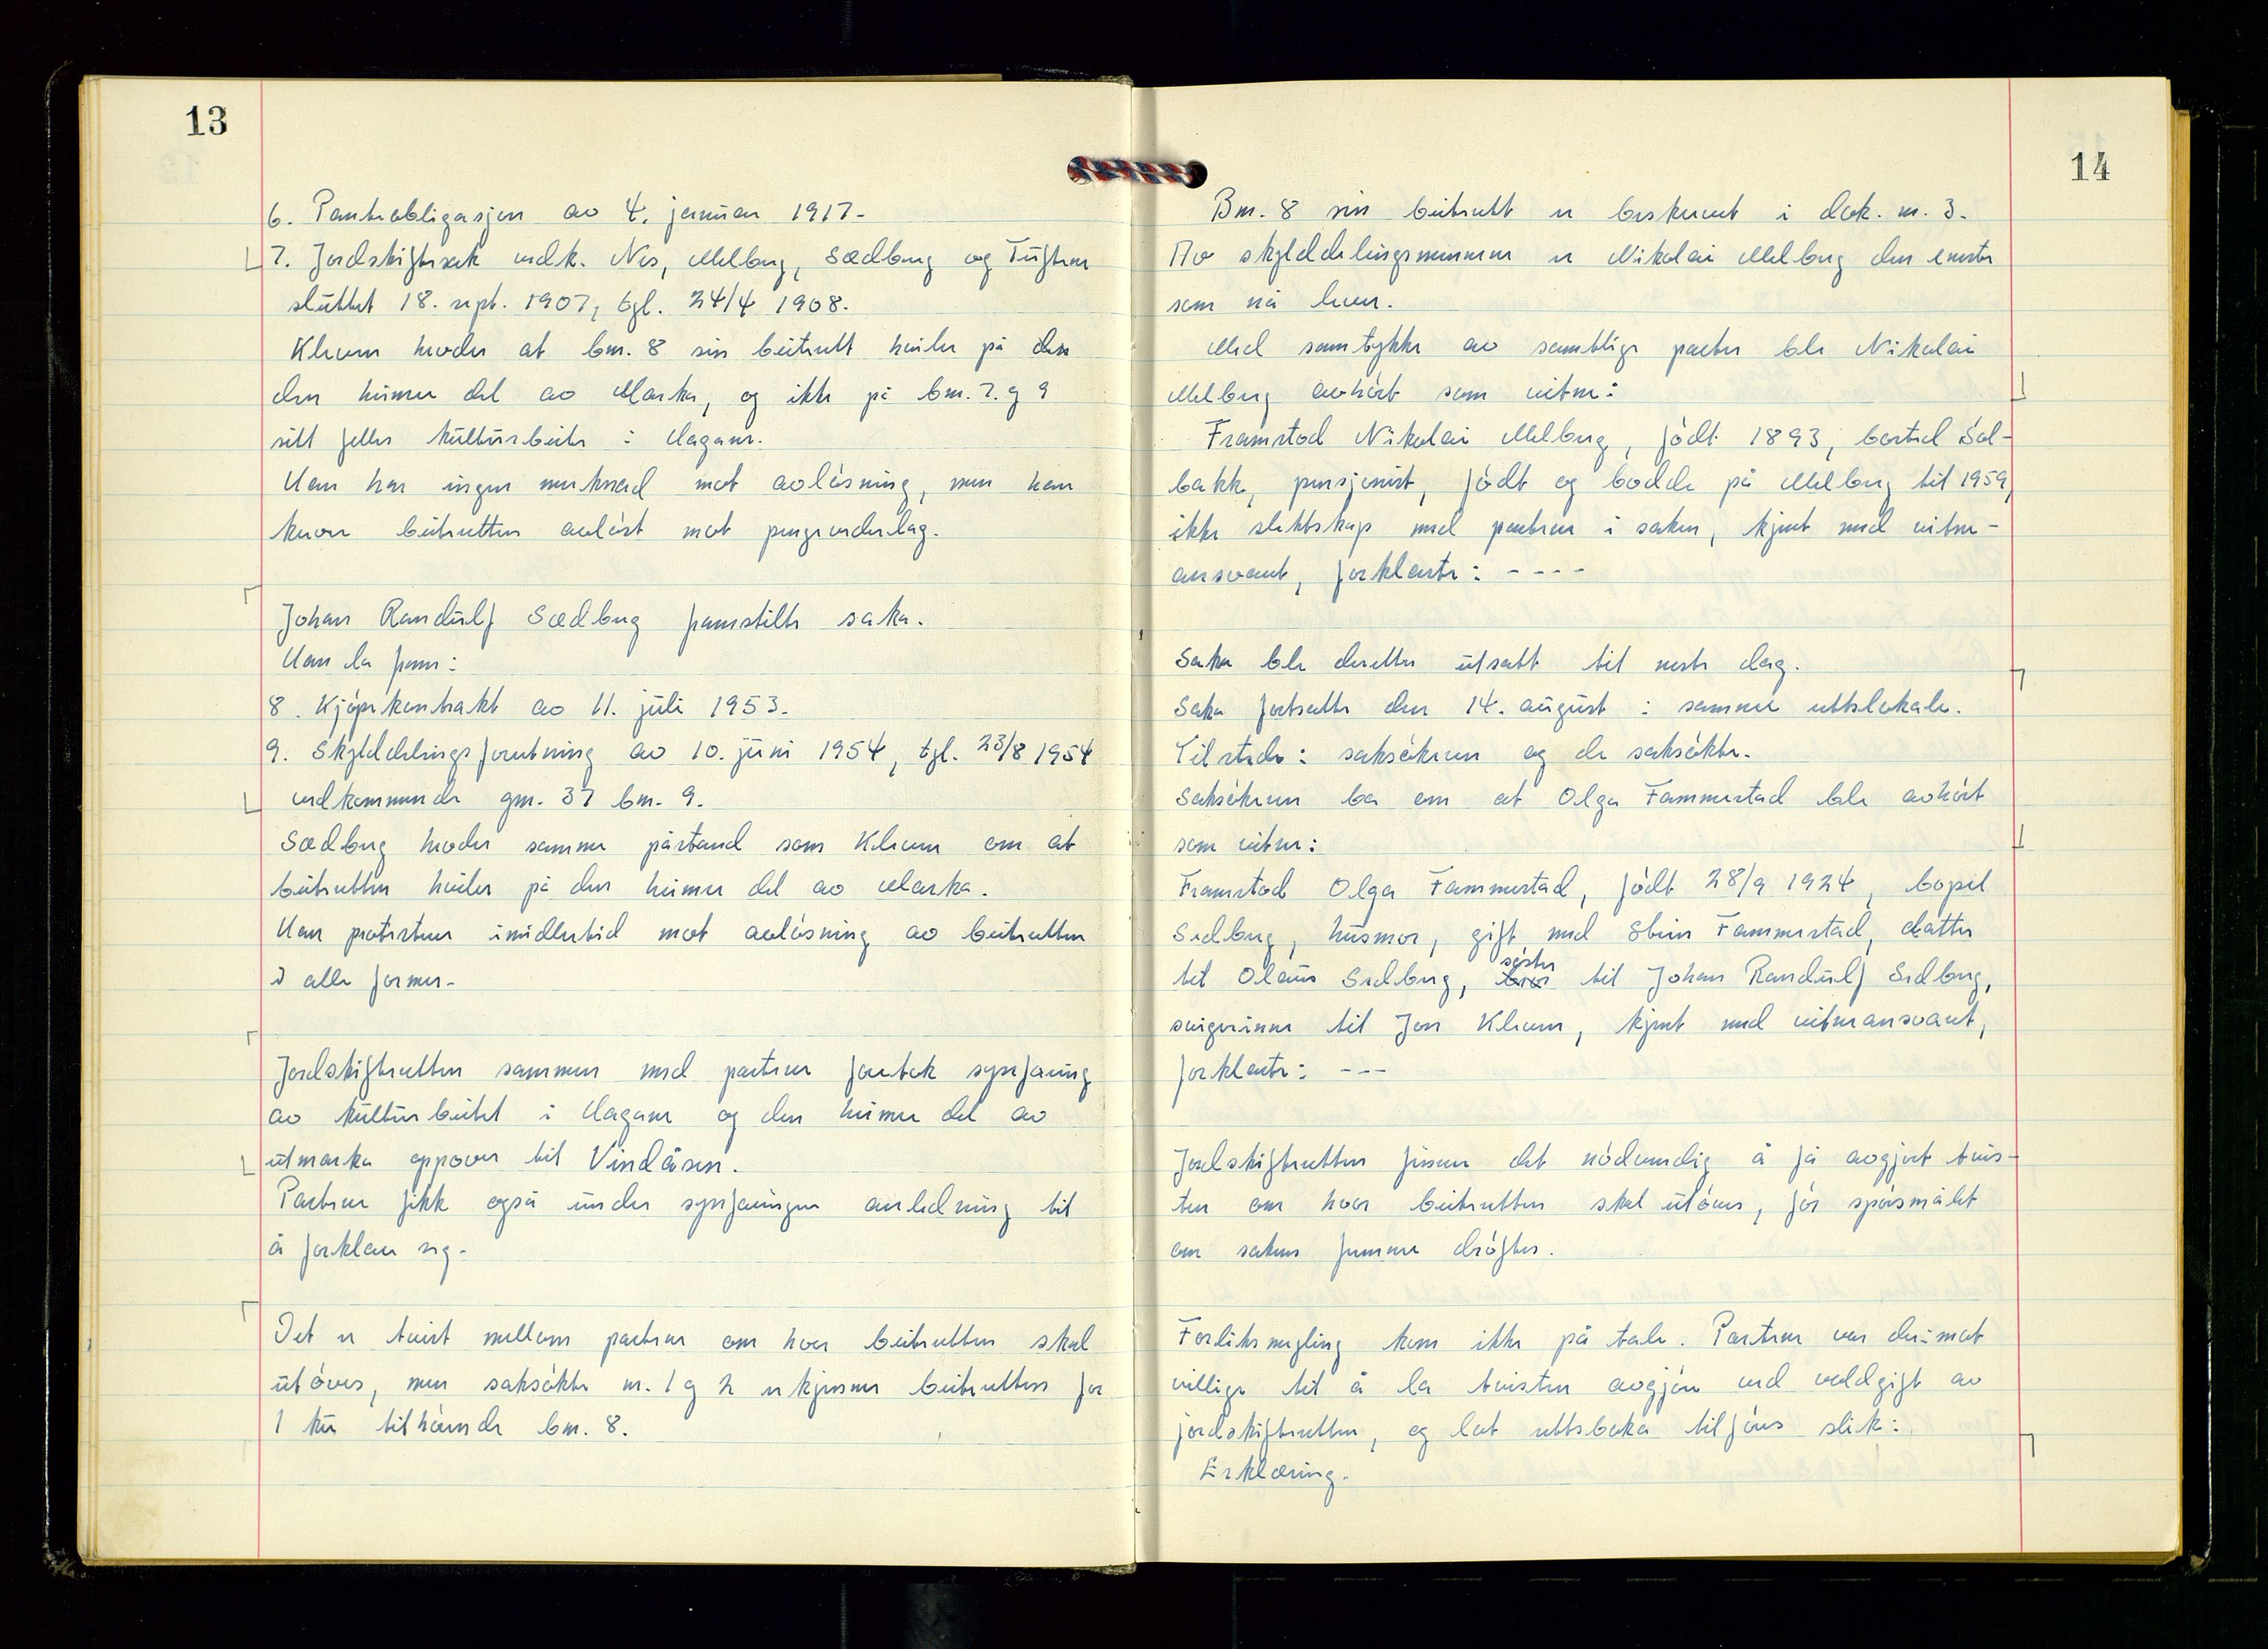 13
6. Panteobligasjon av 4. januar 1917.
7. Jordskiftesak vedk. Nes, Melberg, Sædberg og Tuftene
sluttet 18. sept. 1907, tgl. 24/4 1908.
Kleven hevder at bnr. 8 sin beiterett hviler på den
den heimre del av Marka, og ikke på bnr. 7. og 9
sitt felles kulturbeite i Hagane.
Han har ingen merknad mot avløsning, men han
krever beiteretten avløst mot pengevederlag.
Johan Randulf Sædberg framstilte saka.
Han la fram:
8. Kjøpekontrakt av 11. juli 1953.
9. Skylddelingsforretning av 10. juni 1954, tgl. 23/8 1954
vedkommende gnr. 37 bnr. 9.
Sædberg hevder samme påstand som Kleven om at
beiteretten hviler på den heimre del av Marka.
Han protesterer imidlertid mot avløsning av beiteretten
i alle former.
Jordskifteretten sammen med partene foretok synfaring
av kulturbeitet i Hagane og den heimre del av
utmarka oppover til Vindåsen.
Partene fikk også under synfaringen anledning til
å forklare seg.
Det er tvist mellom partene om hvor beiteretten skal
utøves, men saksøkte nr. 1 og 2 erkjenner beiteretten for
1 ku tilhørende bnr. 8.
14
Bnr. 8 sin beiterett er beskrevet i dok. nr. 3.
Av skylddelingsmennene er Nikolai Melberg den eneste
som nå lever.
Med samtykke av samtlige parter ble Nikolai
Melberg avhørt som vitne:
Framstod Nikolai Melberg, født 1893, bosted Sol-
bakk, pensjonist, født og bodde på Melberg til 1959,
ikke slektskap med partene i saken, kjent med vitne-
ansvaret, forklarte: ----
Saka ble deretter utsatt til neste dag.
Saka fortsatte den 14. august i samme rettslokale.
Tilstede: saksøkeren og de saksøkte.
Saksøkeren ba om at Olga Fammestad ble avhørt
som vitne:
Framstod Olga Fammestad, født 28/9 1924, bopel
Sedberg, husmor, gift med Stein Fammestad, datter
til Olaus Sedberg, bror søster til Johan Randulf Sedberg,
svigerinne til Jon Kleven, kjent med vitneansvaret,
forklarte: ---
Jordskifteretten finner det nødvendig å få avgjort tvis-
ten om hvor beiteretten skal utøves, før spørsmålet
om sakens fremme drøftes.
Forliksmegling kom ikke på tale. Partene var derimot
villige til å la tvisten avgjøre ved voldgift av
jordskifteretten, og lot rettsboka tilføres slik:
Erklæring.